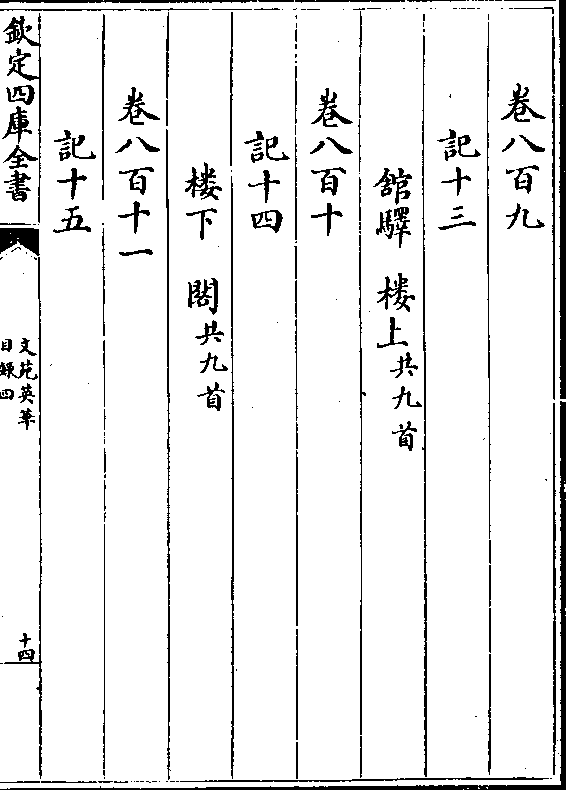 卷八百九
記十三
舘驛 樓上共九首
卷八百十
記十四
樓下 閣共九首
卷八百十一
記十五
欽定四庫全書
文苑英華
目録四
十四